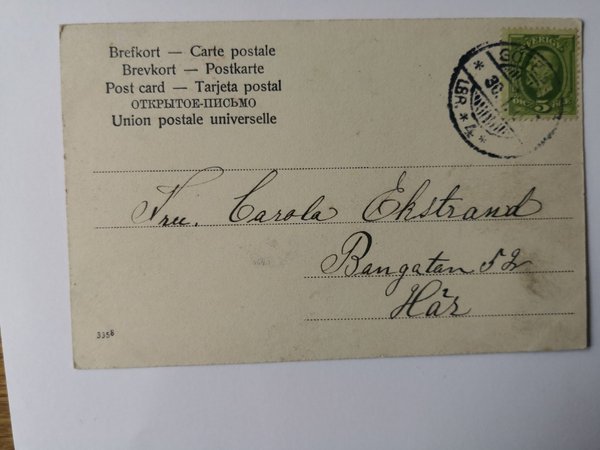 Brefkort — Carte postale
Brevkort — Postkarte
Post card — Tarjeta postal
ОТКРЫТОЕ-ПИСЬМО
Union postale universelle
SVERIGE
5
30
LBR. * 4 *
Carola Ekstrand
Bangatan 52
Här
3358